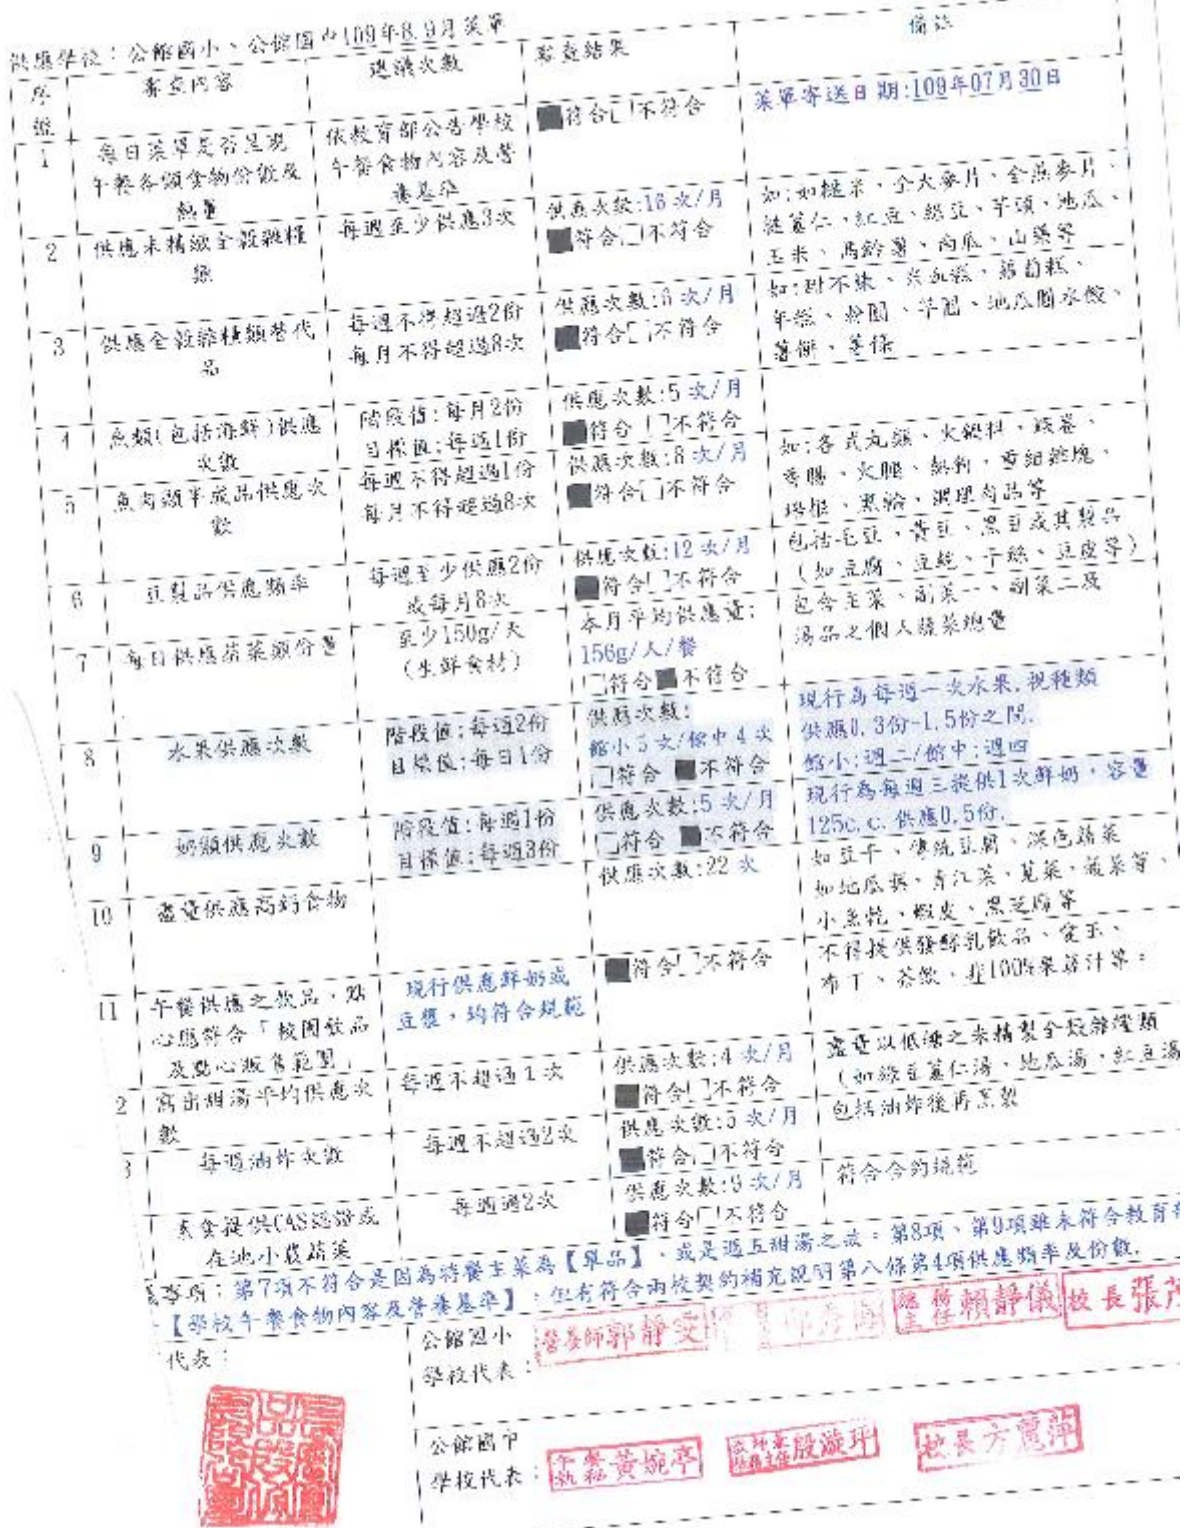 供應學校：公館國小、公館國中109年8.9月菜單
序號 審查內容 建議次數 審查結果 備註
1 每日菜單是否呈現午餐各類食物份數及熱量
依教育部公告學校午餐食物內容及營養基準
■符合□不符合
菜單寄送日期:109年07月30日
2 供應未精緻全穀雜糧類
每週至少供應3次
供應次數:16次/月
■符合□不符合
如:如糙米、全大麥片、全燕麥片、
薏仁、紅豆、綠豆、芋頭、地瓜、
玉米、馬鈴薯、南瓜、山藥等
3 供應全穀雜糧類替代品
每週不得超過2份
每月不得超過8次
供應次數:6次/月
■符合□不符合
如:甜不辣、米血糕、蘿蔔糕、
年糕、粉圓、芋圓、地瓜圓水餃、
薯餅、薯條
4 魚類(包括海鮮)供應次數
階段值:每月2份
目標值:每週1份
供應次數:5次/月
■符合□不符合
5 魚肉類半成品供應次數
每週不得超過1份
每月不得超過8次
供應次數:8次/月
■符合□不符合
如:各式丸類、火鍋料、
香腸、火腿、熱狗、重組雞塊、
黑輪、調理肉品等
6 豆製品供應頻率
每週至少供應2份
或每月8次
供應次數:12次/月
■符合□不符合
包括毛豆、黃豆、黑豆或其製品
(如豆腐、豆干、干絲、豆皮等)
7 每日供應蔬菜類份量
至少150g/天
(生鮮食材)
本月平均供應量:
156g/人/餐
□符合■不符合
包含主菜、副菜一、副菜二及
湯品之個人蔬菜總量
8 水果供應次數
階段值:每週2份
目標值:每日1份
供應次數:
館小5次/館中4次
□符合■不符合
現行為每週一次水果,視種類
供應0.3份-1.5份之間.
館小:週二/館中:週四
9 奶類供應次數
階段值:每週1份
目標值:每週3份
供應次數:5次/月
□符合■不符合
現行為每週三提供1次鮮奶，容量
125c.c.供應0.5份.
10 盡量供應高鈣食物
供應次數:22次
如豆干、傳統豆腐、深色蔬菜
如地瓜葉、青江菜、莧菜、
小魚乾、蝦皮、黑芝麻等
11 午餐供應之飲品、點
心應符合「校園飲品
及點心販售範圍」
現行供應鮮奶或
豆漿，均符合規範
■符合□不符合
不得提供發酵乳飲品、愛玉、
布丁、茶飲、非100%果蔬汁等。
2 寫出甜湯平均供應次數
每週不超過1次
供應次數:4次/月
■符合□不符合
盡量以低油之未精製全穀雜糧類
(如綠豆薏仁湯、地瓜湯、紅豆湯
3 每週油炸次數
每週不超過2次
供應次數:5次/月
■符合□不符合
包括油炸後再烹製
素食提供CAS認證或
在地小農蔬菜
每週2次
供應次數:9次/月
■符合□不符合
符合合約規範
事項：第7項不符合是因為特餐主菜為【單品】、或是週五甜湯之故。第8項、第9項雖未符合教育
【學校午餐食物內容及營養基準】，但有符合兩校契約補充說明第八條第4項供應頻率及份數.
代表：
公館國小
學校代表：
營養師郭靜雯
主任賴靜儀
校長張茂
公館國中
學校代表：
午餐執秘黃婉亭
殷漩玶
校長方麗萍